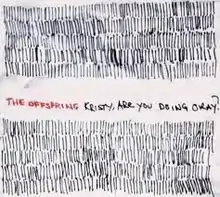 THE OFFSPRING KRISTY, ARE YOU DOING OKAY?